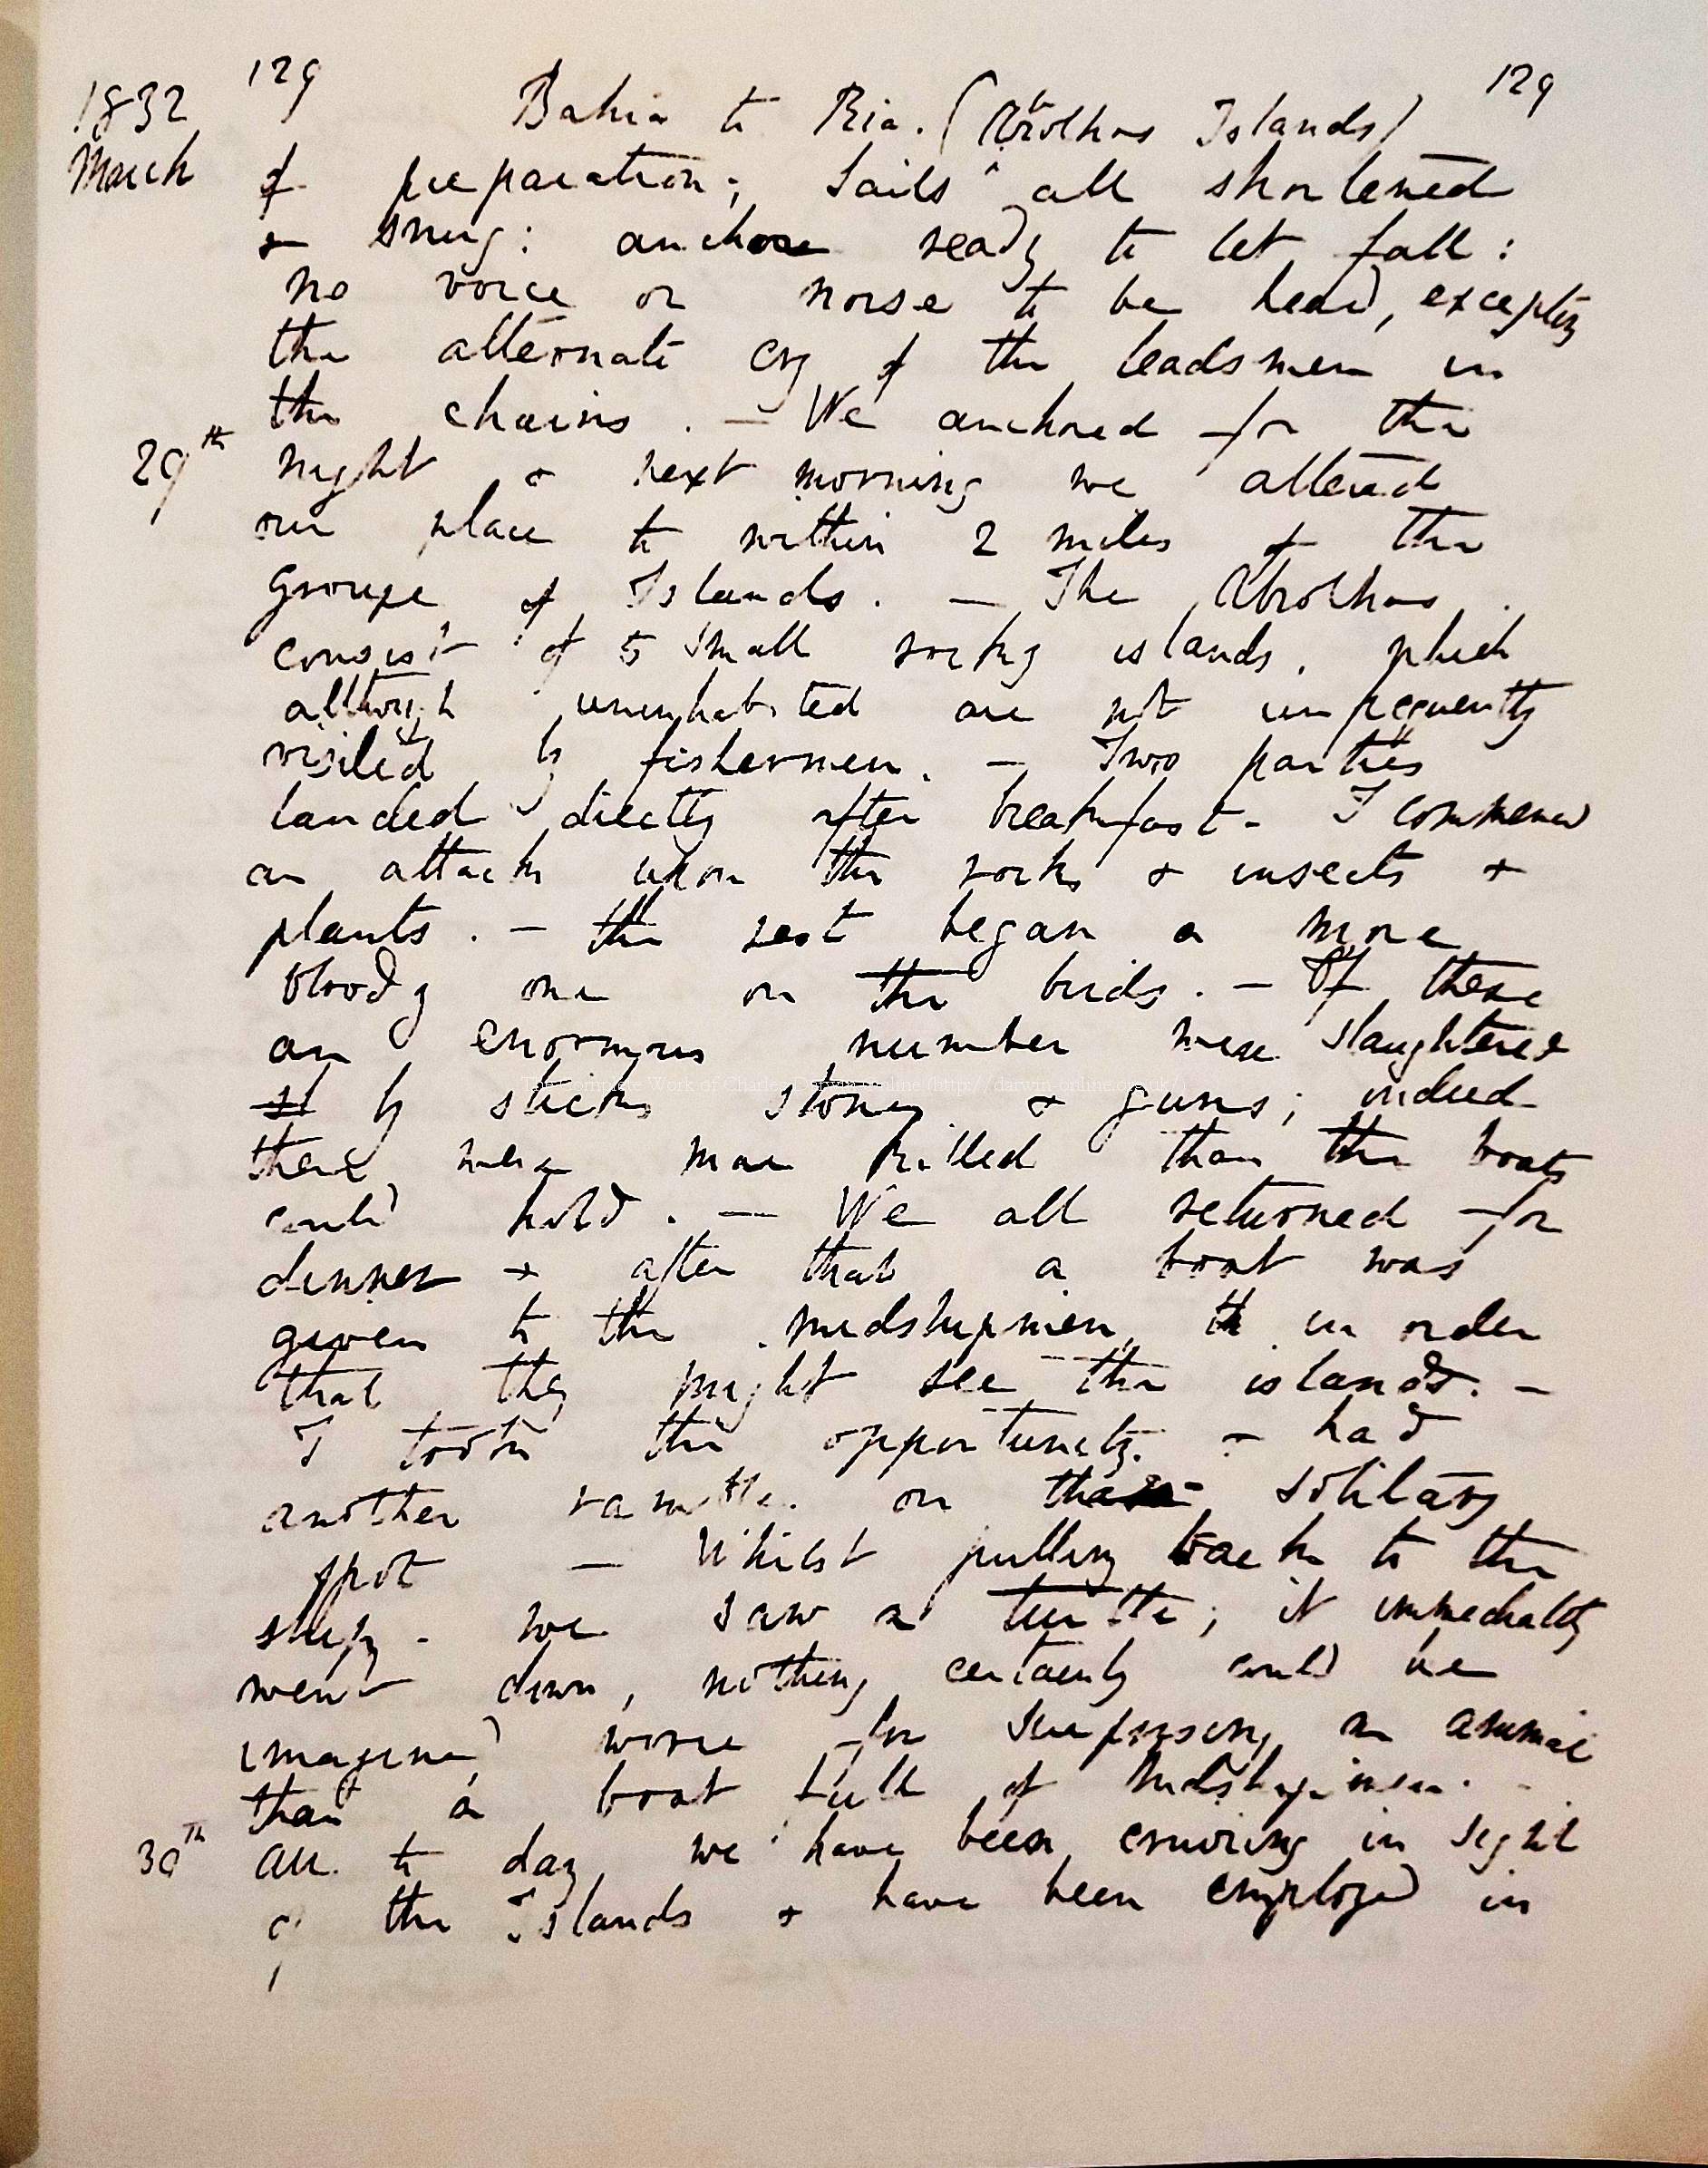 129 129
1832 Bahia to Rio. (Abrolhos Islands)
March of preparation; sails all shortened
& snug: anchor ready to let fall:
no voice or noise to be heard, excepting
the alternate cry of the leadsmen in
the chains. — We anchored for the
29th night & next morning we altered
our place to within 2 miles of the
Groupe of Islands. — The Abrolhos
consist of 5 small rocky islands, which
although uninhabited are not unfrequently
visited by fishermen. — Two parties
landed directly after breakfast — I commenced
an attack upon the rocks & insects &
plants. — the rest began a more
bloody one on the birds. — Of these
an enormous number were slaughtered
st by sticks stones & guns; indeed
there were more killed than the boats
could hold. — We all returned for
dinner & after that a boat was
given to the midshipmen, th in order
that they might see the islands. —
I took the opportunity. — had
another ramble on solitary
spot — Whilst pulling back to the
ship. we saw a turtle; it immediately
went down, nothing certainly could be
imagined worse for surprising an animal
than a boat full of Midshipmen. —
30th All to day we have been cruising in sight
of the Islands & have been employed in
The Complete Work of Charles Darwin Online (http://darwin-online.org.uk/)